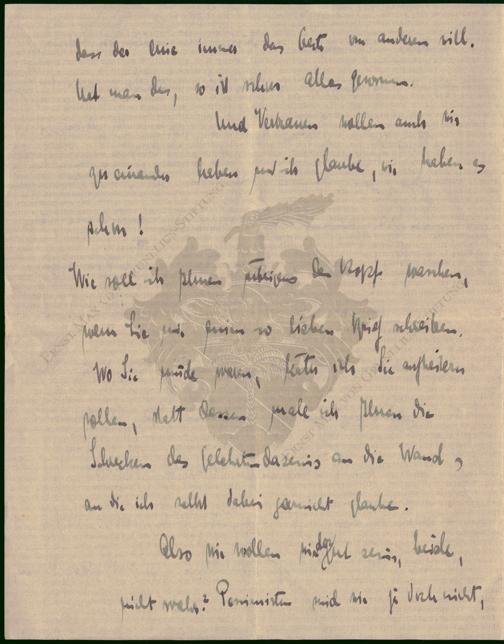 dass der eine immer das Beste vom anderen will.
Hat man das, so ist schon alles gewonnen.
Und Vertrauen wollen auch wir
zu einander haben und ich glaube, wir haben es
schon!
Wie soll ich Ihnen übrigens den Kopf waschen,
wenn Sie mir einen so lieben Brief schreiben.
Wo Sie müde waren, hätte ich Sie aufheitern
sollen, statt dessen male ich Ihnen die
Schrecken des Gelehrtendaseins an die Wand,
an die ich selbst dabei garnicht glaube.
Also wir wollen wieder gut sein, beide,
nicht wahr? Pessimisten sind wir ja doch nicht,
ERNST MAX VON GRUNELIUS-STIFTUNG
ERNST MAX VON GRUNELIUS-STIFTUNG